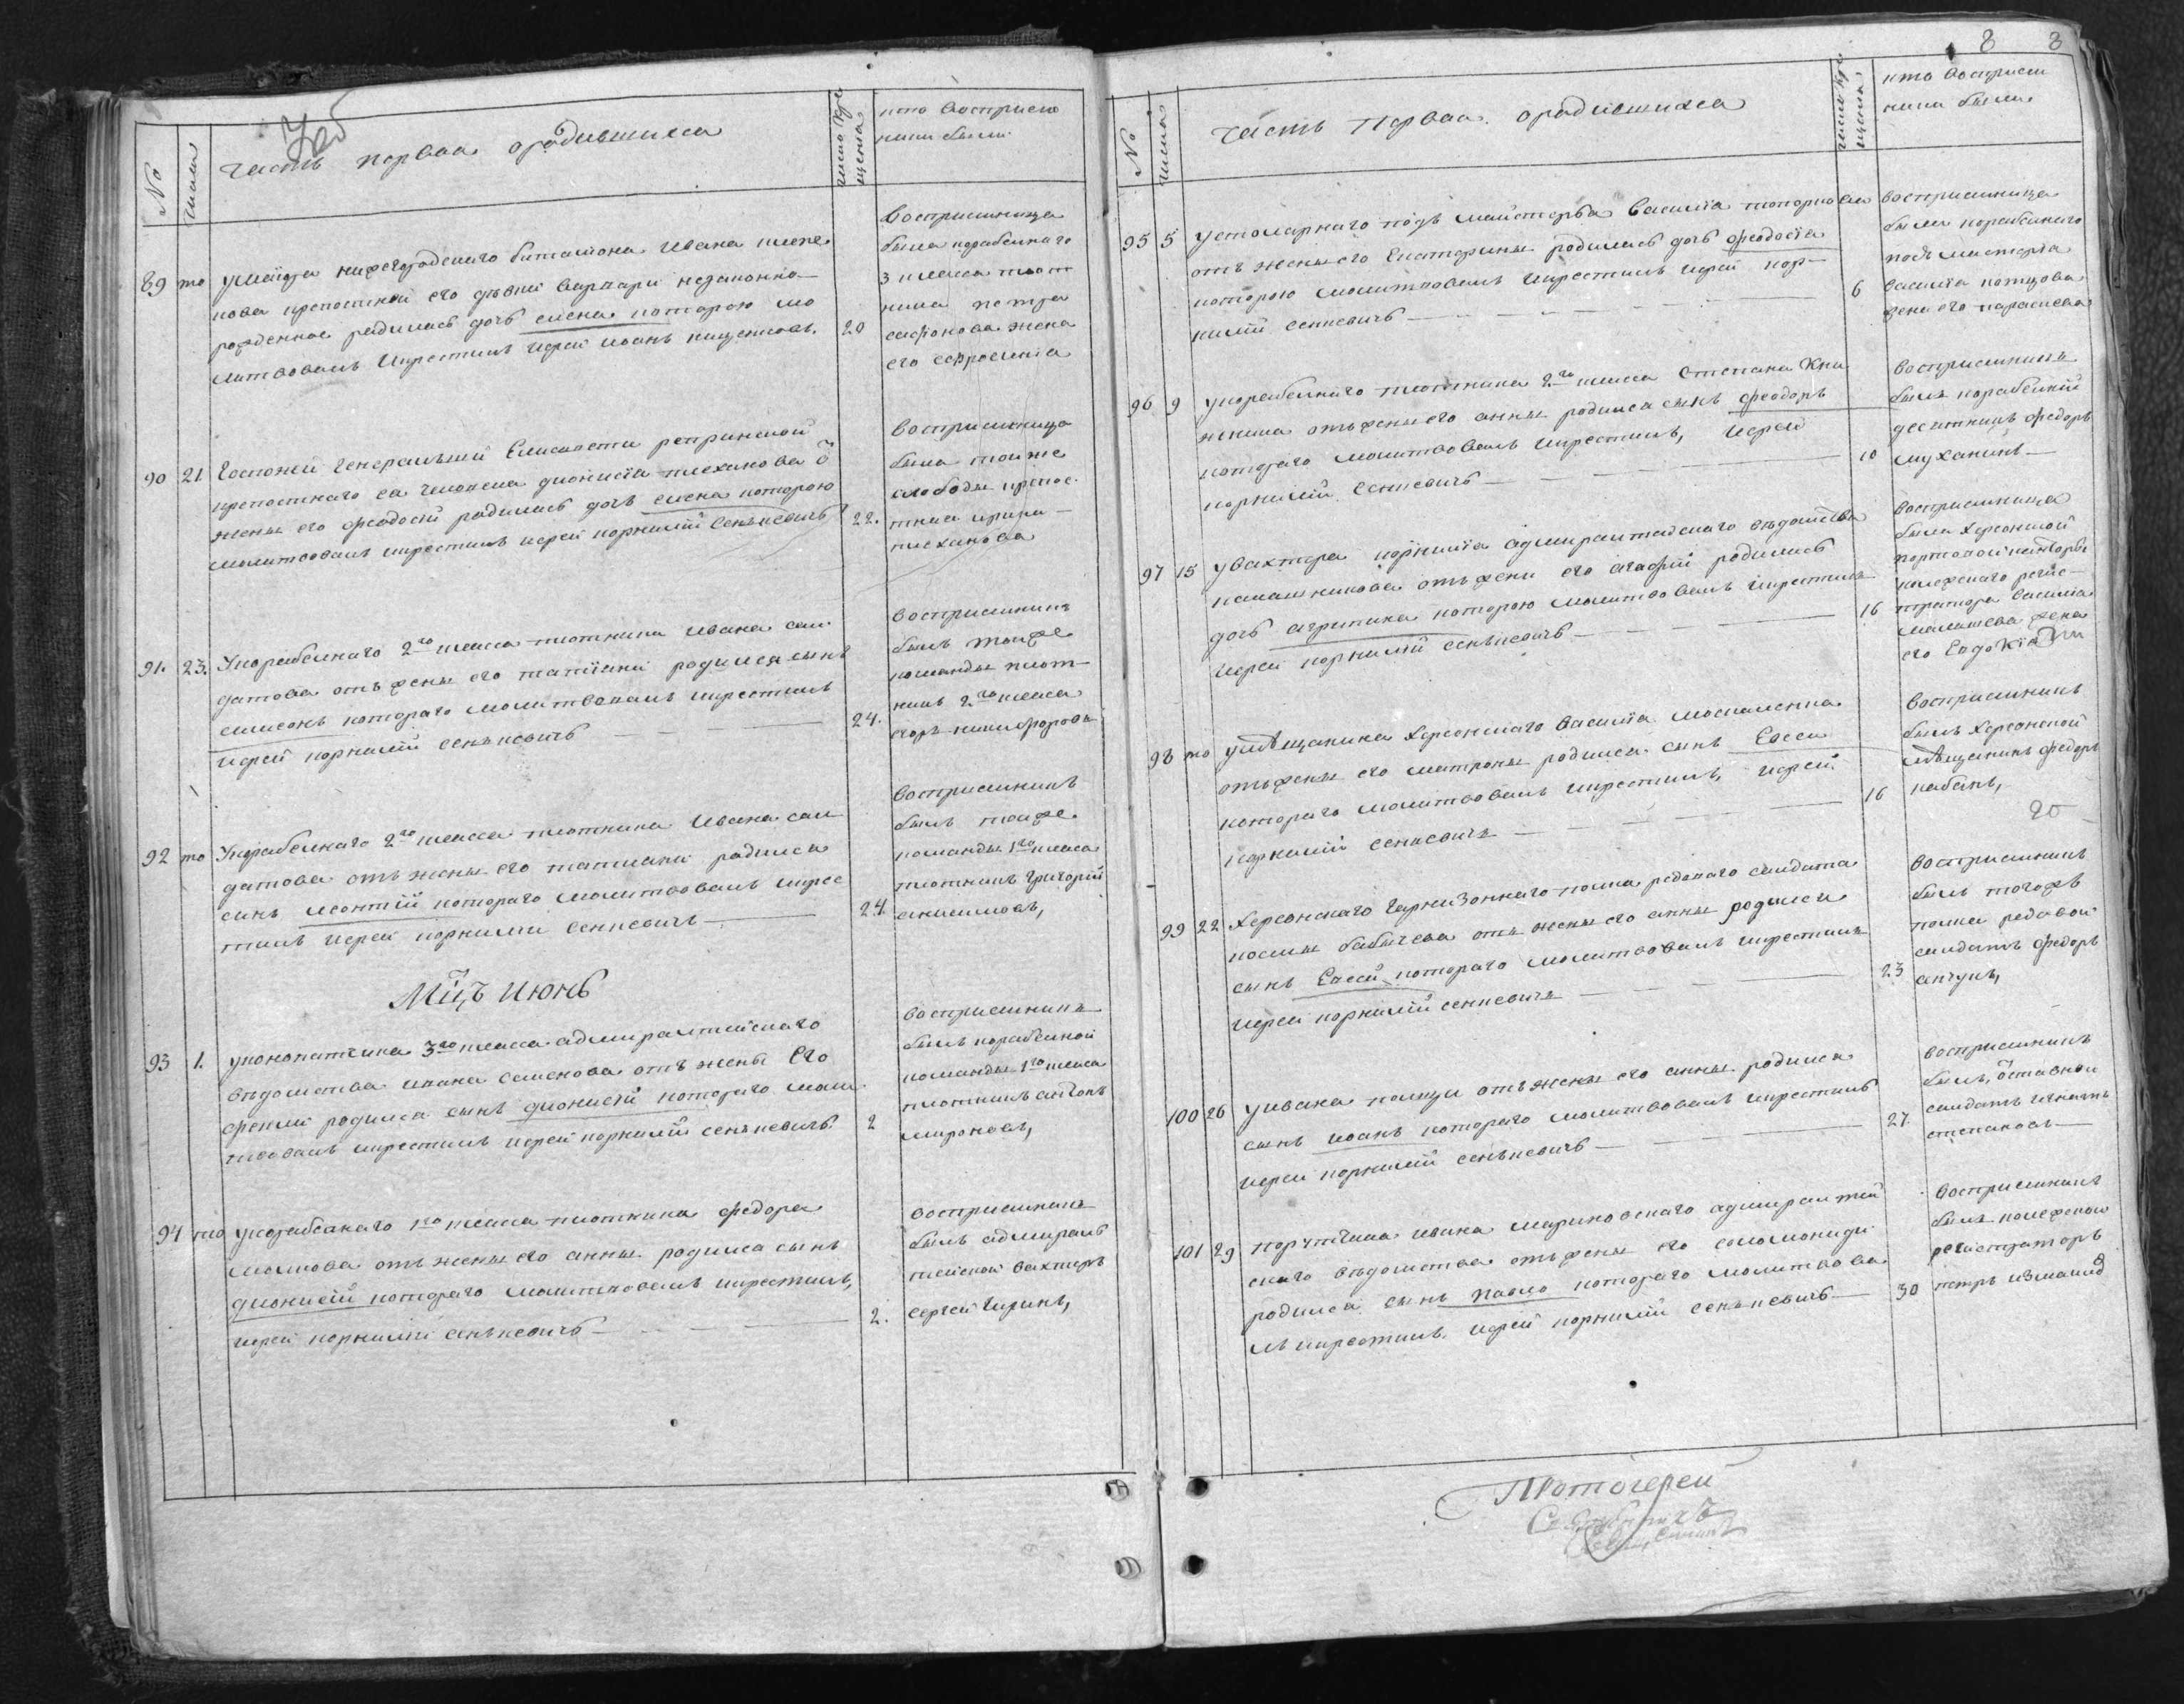 №
числа
часть первая о родившихся
число кре
щена
кто восприем
ники были
89 то у маіора нижегородскаго баталіона Ивана
нова крепостной его девки варвары незаконно
рожденное родилась дочь елена которою мо
литвовалъ икрестилъ иерей иоанъ 20
восприемница
была корабелнаго
3 класса плот
ника петра
сафонова жена
его ефросиніа
90 21 Госпожи Генеральши Елисавети репринской
крепостнаго еа человека дионисіа плеханова о
жены его феодосіи родилась дочь елена которою
молитвовалъ икрестилъ иерей корнилій сенькевичь 22.
восприемница
была тоиже
слободы крепос
тная ирина
плеханова
91. 23. У корабелнаго 2го класса плотника Ивана сал
датова отъ жены его татіяни родился сынъ
симеонъ котораго молитвовалъ икрестилъ
иерей корнилій сенькевичь 24.
восприемникъ
былъ тоиже
команды плот
никъ 2го класса
егоръ никифоровъ
92 то У корабелнаго 2го класса плотника Ивана сал
датова отъ жены его татиани родился
синъ леонтій котораго молитвовалъ икрес
тилъ иерей корнилій сенкевичь 24.
восприемникъ
былъ тоиже
команды 1го класа
плотникъ григорій
анисимовъ,
Мцъ июнь
93 1. у конопатчика 3го класса адмиралтийскаго
ведомства ивана семенова отъ жены Его
родился сынъ дионисій котораго моли
твовалъ икрестилъ иерей корнилій сенькевичь 2
восприемникъ
былъ корабелной
команды 1го класа
плотникъ антонъ
мироновъ,
94 то у корабелнаго 1го класса плотника федора
отъ жены его анны родился сынъ
дионисій котораго молитвовалъ икрестилъ,
иерей корнилій сенькевичь 2.
восприемникъ
былъ адмирал
тейской вахтеръ
сергей чиринъ,
8 8
№
числа
часть первая о родившихся
число кре
щена
кто восприем
ники были
95 5 у столярнаго подъ майстерьа василіа
отъ жены его Екатерины родилась дочь феодосіа
которою молитвовалъ икрестилъ иерей кор
нилій сенкевичь 6
восприемница
была корабелнаго
подъ мастерьа
василіа
жена его параскева
96 9 у корабелнаго плотника 2го класса степана Кни
жника отъ жены его анны родился сынъ феодоръ
котораго молитвовалъ икрестилъ, иерей
корнилій сенкевичь 10
восприемникъ
былъ корабелній
десятникъ федоръ
муханинъ
97 15 у вахтера корнилія адмиралтейскаго ведомства
калашникова отъ жены его агафіи родилась
дочь агрипина которою молитвовалъ икрестилъ
иерей корнилій сенькевичь 16
восприемница
была херсонской
портовой канторы
колежскаго регис
тратора василіа
малышева жена
его Евдокіа
98 то у мѣщанина херсонскаго василіа москаленка
отъ жены его матроны родился сынъ Евсей
котораго молитвовалъ икрестилъ, иерей
корнилій сенкевичь 16
восприемникъ
былъ херсонской
мѣщанинъ федоръ
кабанъ,
20
99 22 Херсонскаго гарнизоннаго полка редоваго салдата
козмы бабычева отъ жены его анны родился
сынъ Евсей котораго молитвовалъ икрестилъ
иерей корнилій сенкевичь 23
восприемникъ
былъ тогожъ
полка редовой
салдатъ федоръ
100 26 у ивана отъ жены его анны родился
сынъ иоанъ котораго молитвовалъ икрестилъ
иерей корнилій сенькевичь 27.
восприемникъ
былъ, отставной
салдатъ игнатъ
степановъ
101 29 порутчика ивана мариновскаго адмиралтей
скаго ведомства отъ жены его соломониди
родился сынъ павло котораго молитвова
лъ икрестилъ иерей корнилій сенькевичь 30
восприемникъ
былъ колежской
регистраторъ
петръ
Протоіерей